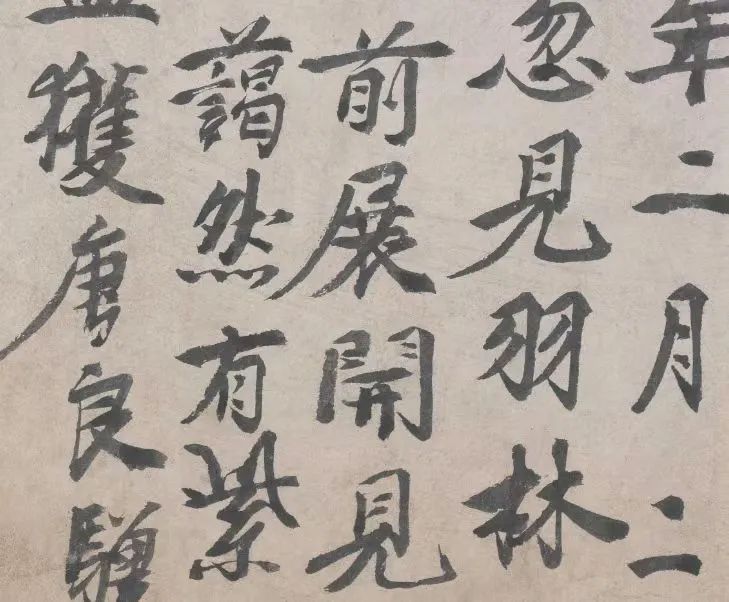 年二月二
忽見羽林
前展開見
藹然有紫
獲唐良驥